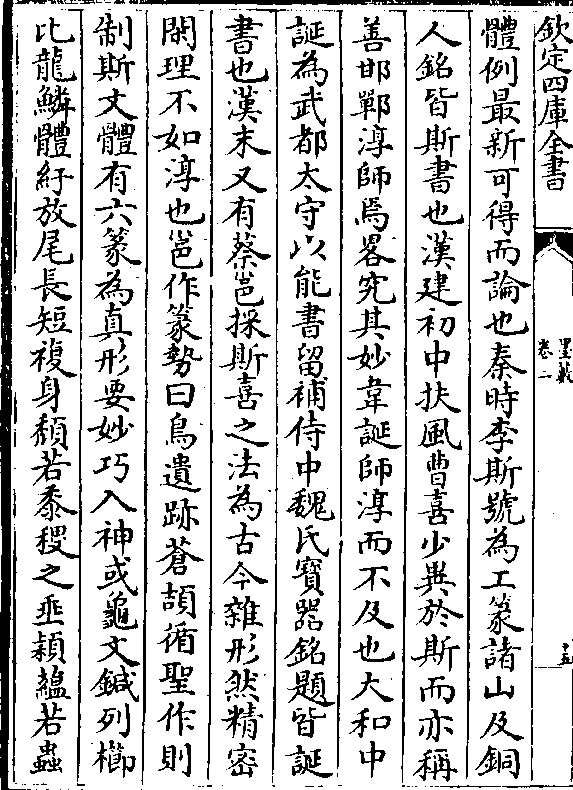 欽定四庫全書
墨藪
卷二
十五
體例最新可得而論也秦時李斯號為工篆諸山及銅
人銘皆斯書也漢建初中扶風曹喜少異於斯而亦稱
善邯鄲淳師焉畧究其妙韋誕師淳而不及也大和中
誕為武都太守以能書留補侍中魏氏寶器銘題皆誕
書也漢末又有蔡邕採斯喜之法為古今雜形然精密
閑理不如淳也邕作篆勢曰鳥遺跡蒼頡循聖作則
制斯文體有六篆為真形要妙巧入神或龜文鍼列櫛
比龍鱗體紓放尾長短複身頹若黍稷之垂穎蘊若蟲